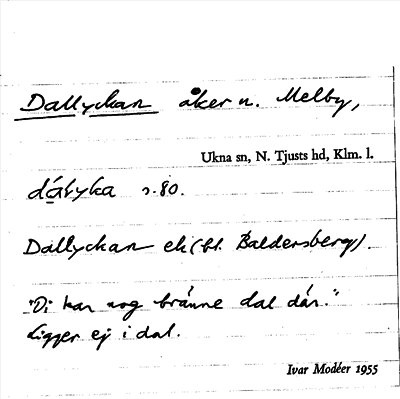 Dallyckan åker n. Melby,
Ukna sn, N. Tjusts hd, Klm. l.
dályka s. 80.
Dallyckan ek (bl. Baldersberg).
"Di har nog bränne dal där."
Ligger ej i dal.
Ivar Modéer 1955